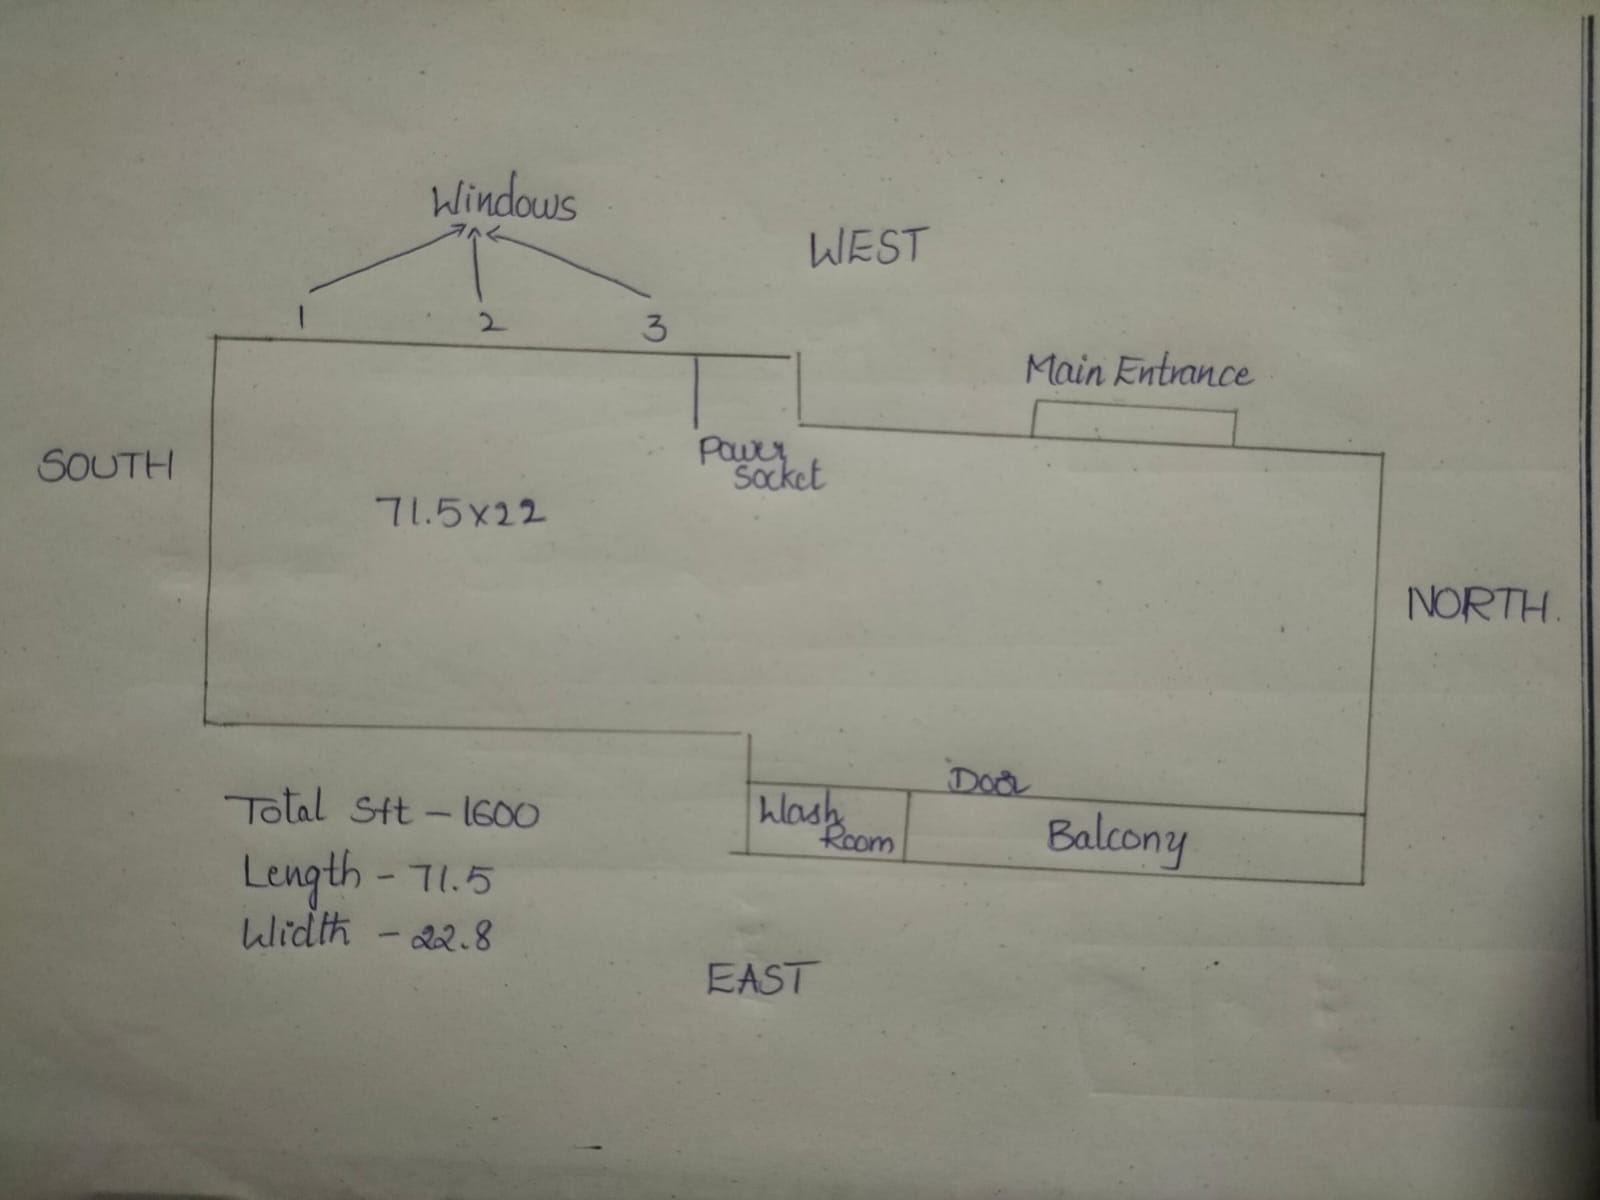 Windows
WEST
1 2 3
Main Entrance
Power
Socket
SOUTH
71.5x22
NORTH.
Door
Wash
Room
Balcony
Total Sft - 1600
Length - 71.5
Width - 22.8
EAST